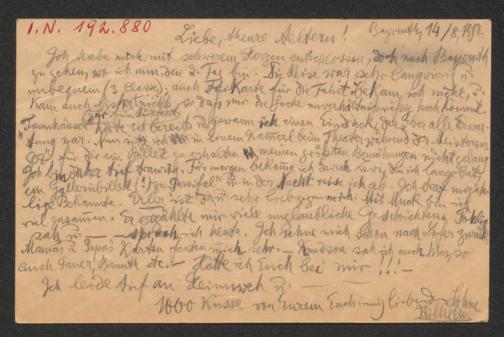 I.N. 192.880
Bayreuth, 14/8. 1892.
Liebe, theure Aeltern!
Ich habe mich mit schwerem Herzen entschlossen, doch nach Bayreuth
zu gehen, wo ich nun den 2. Tag bin. Die Reise war sehr langwierig u.
unbequem (3 Classe), auch Freikarte für die Fahrt bekam ich nicht, u.
kam auch so daß mir die Sache unverhältnismäßig hoch kommt.
Tannhäuser habe ich bereits u. gewann ich einen Eindruck, der über alle Erwar-
tung war. Nun sitze ich in einem beim Theater während der Meistersin-
ger, für die ein Billet zu erhalten meinen größten Bemühungen nicht gelang
Ich bin daher tief traurig. Für morgen bekomme ich durch Levy, den ich lange bat,
ein Galleriebillet (zu Parsifal) u. in der Nacht reise ich ab. Ich traf unzäh-
lige Bekannte. ist da u. sehr lieb gegen mich. Mit Muck bin ich
viel zusammen. Er erzählte mir viele unglaubliche Geschichten.
sah u. sprach ich heute. Ich sehne mich schon nach zurück
Mamas u. Papas Karten freuten mich sehr. sah ich auch
auch etc. Hätte ich Euch bei mir!!!
Ich leide tief an Heimweh u.
1000 Küsse von Eurem Euch innig liebenden Sohne
Wilhelm